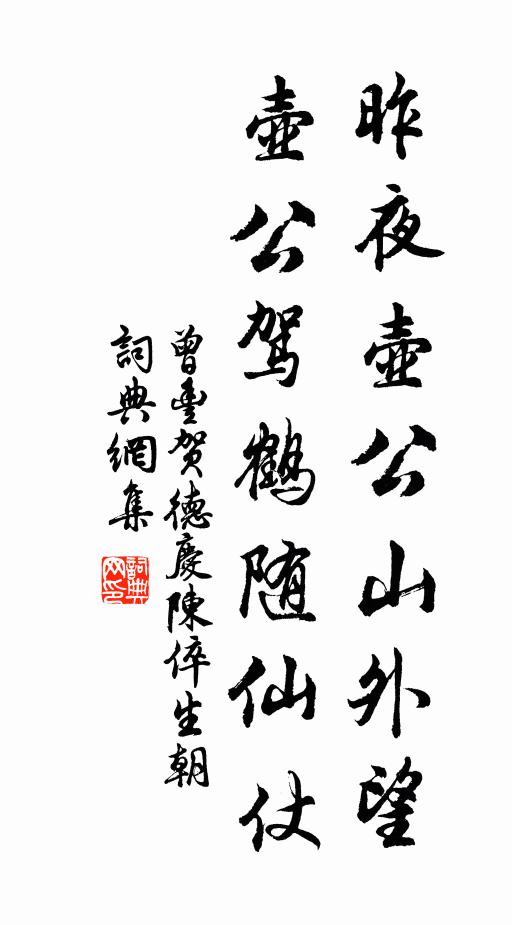 昨夜壺公山外望
壺公駕鶴随仙仗
曾豊賀德慶陳倅生朝
詞典網集
詞典網印